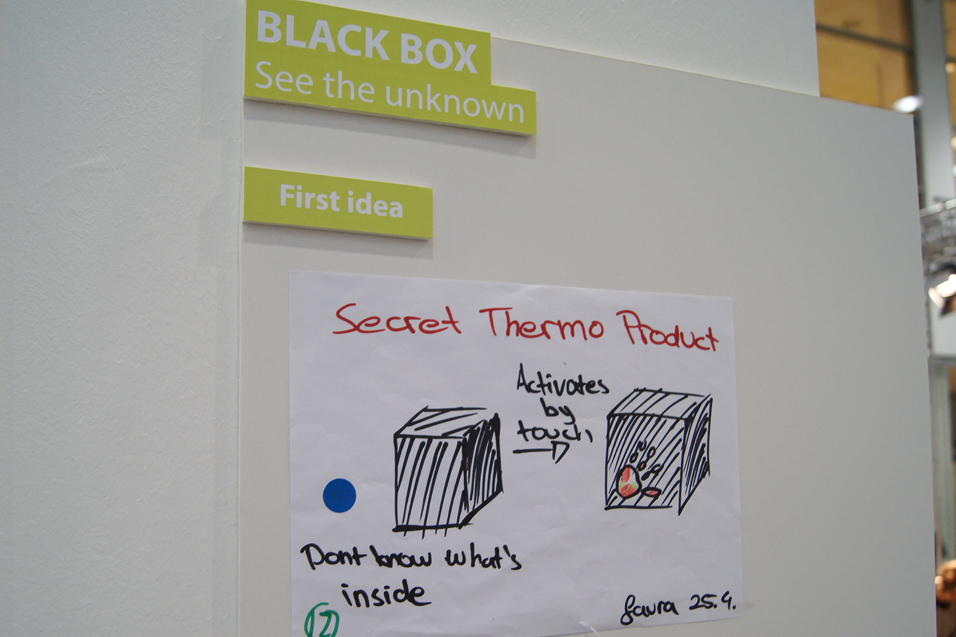 BLACK BOX
See the unknown
First idea
Secret Thermo Product
Activates
by
touch,
Dont know what's
inside
12
Laura 25.4.